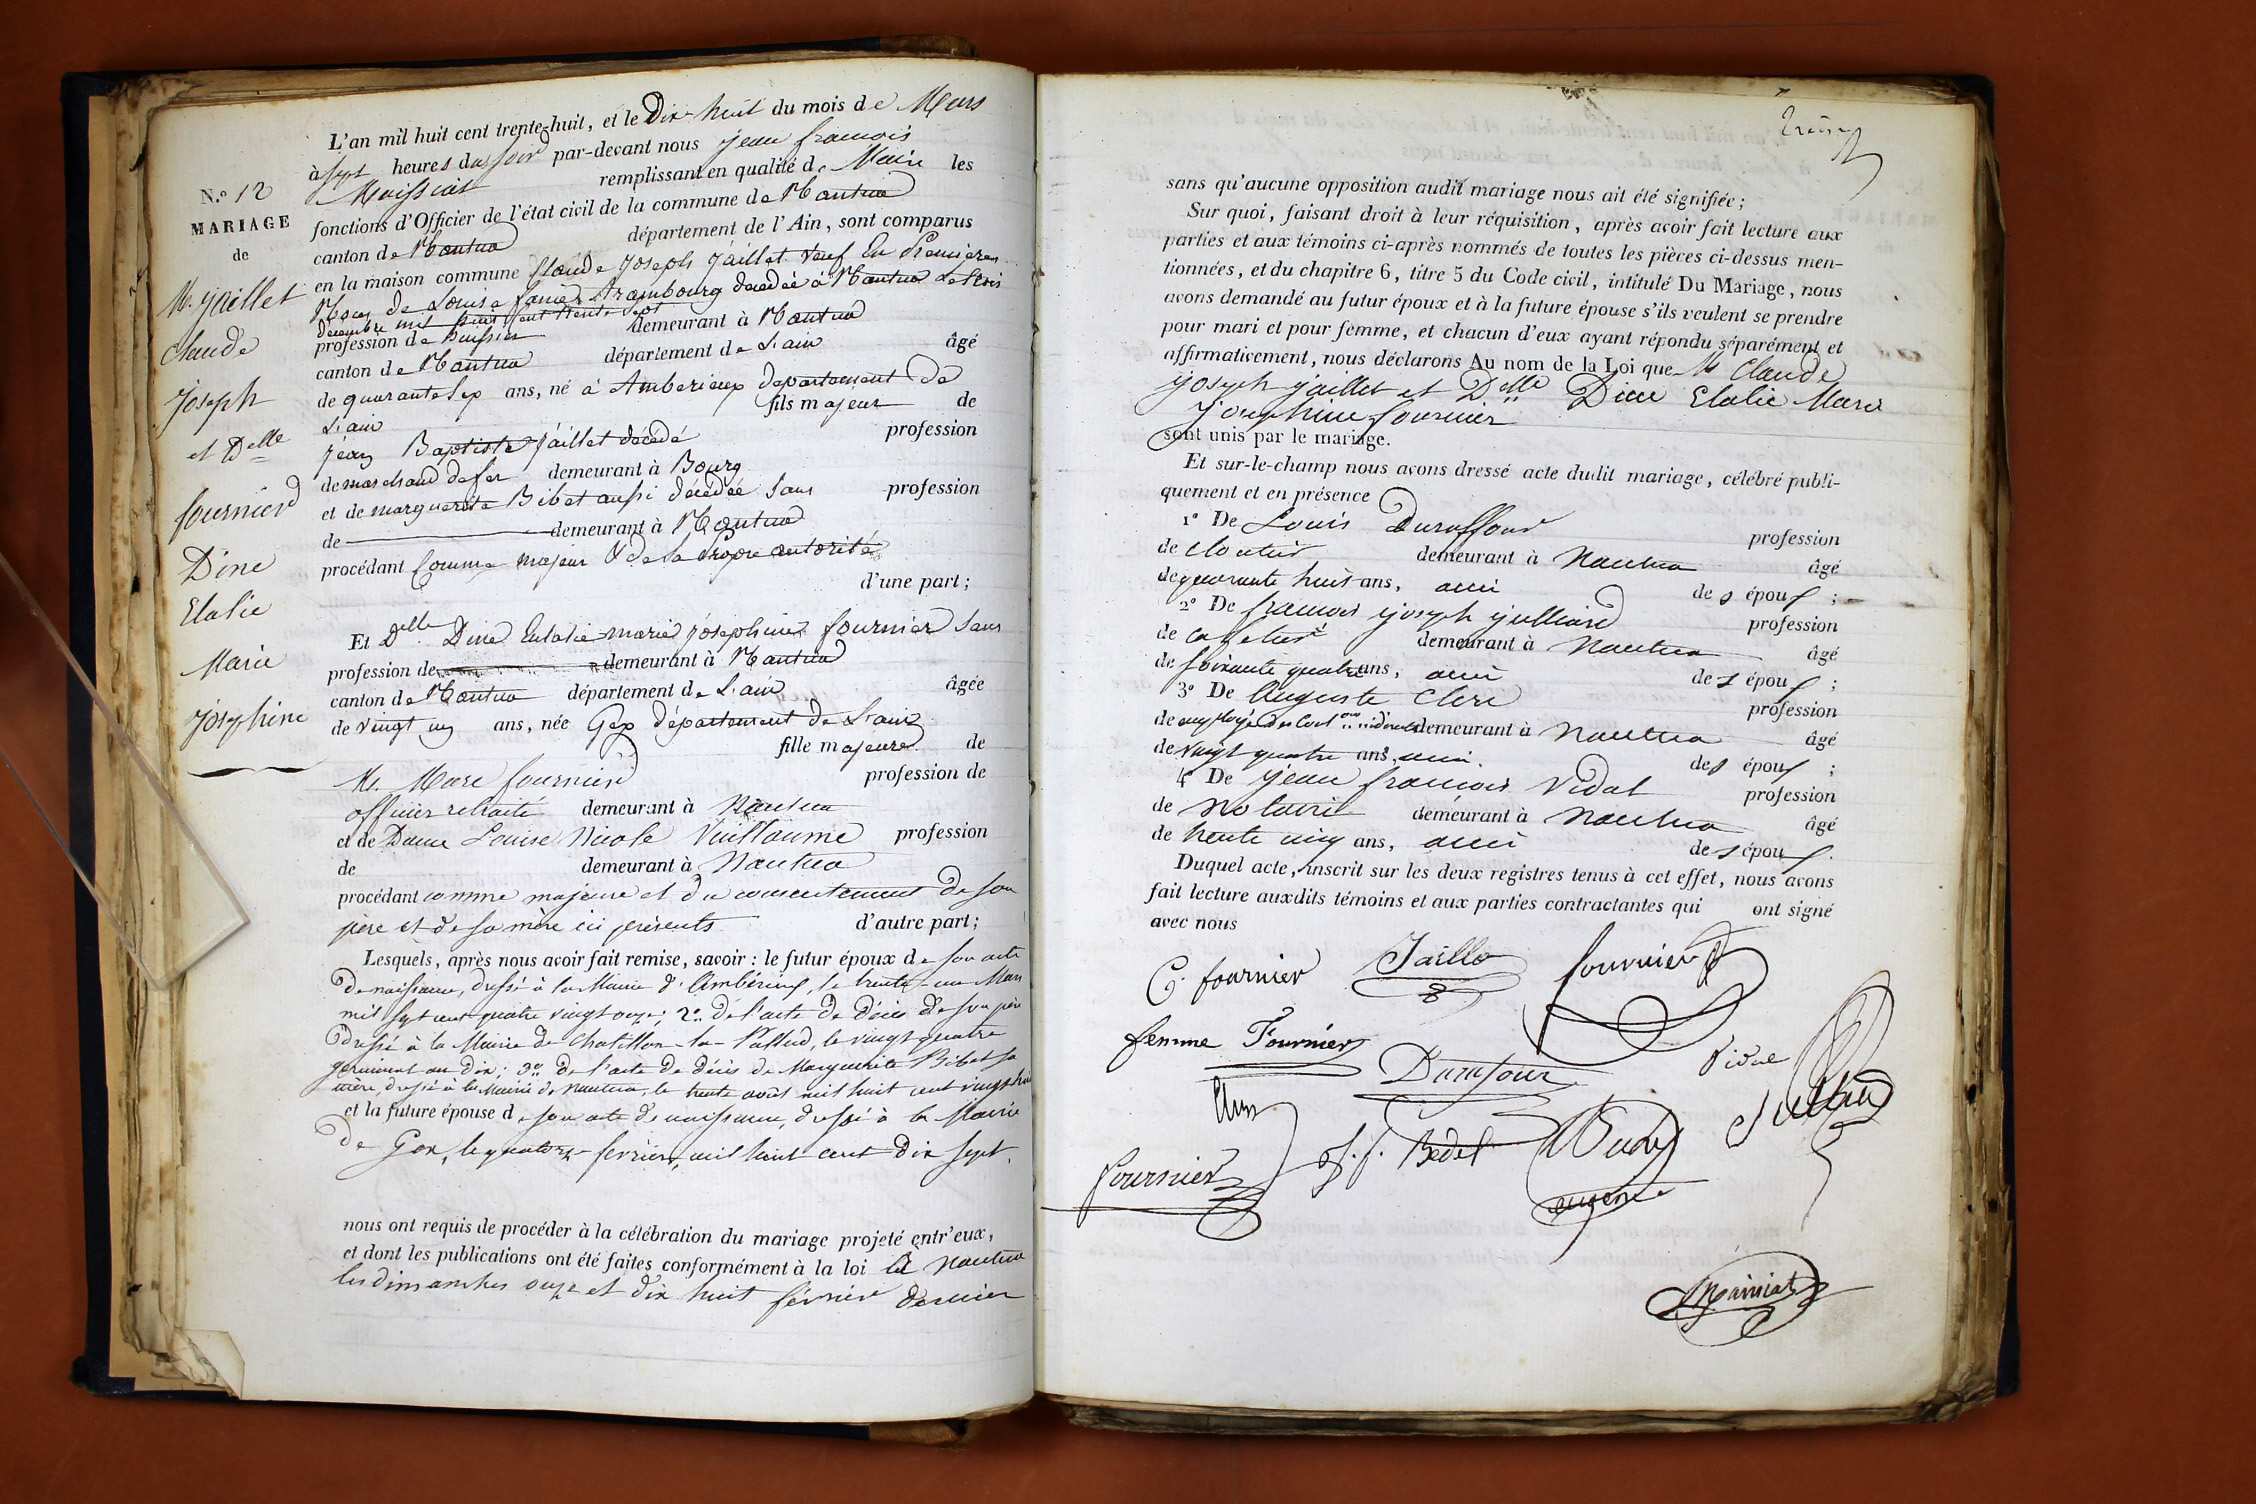 L'an mil huit cent trente-huit, et le Dix huit du mois de Mars
à sept heures du soir par-devant nous jean francois
Maissiat remplissant en qualité de Maire les
fonctions d'Officier de l'état civil de la commune de Nantua
canton de Nantua département de l'Ain, sont comparus
en la maison commune Claude Joseph Jaillet Veuf En Premières
Noces de Louise Arambourg décédée à Nantua Le trois
décembre mil huit cent trente sept
profession de huissier demeurant à Nantua
canton de Nantua département de L'ain âgé
de quarante Sep ans, né à Amberieux departement De
L'ain fils majeur de
jean Baptiste Jaillet décédé profession
de marchand de fer demeurant à Bourg
et de marguerite Bibet aussi décédée Sans profession
de demeurant à Nantua
procédant Comme majeur & de sa Propre autorité
d'une part;
Et Delle Dine Eulalie marie josephine fournier Sans
profession de demeurant à Nantua
canton de Nantua département de L'ain âgée
de vingt un ans, née Gex département de L'ain
fille majeure de
Mr. Marc fournier profession de
officier retraité demeurant à Nantua
et de Dame Louise Nicole Vuillaume profession
de demeurant à Nantua
procédant comme majeure et du consentement de son
père et de sa mère ici présents d'autre part;
Lesquels, après nous avoir fait remise, savoir: le futur époux de son acte
De naissance, dressé à la Mairie d'Ambérieux, le trente un Mars
mil sept cent quatre vingt onze; 2.° De l'acte de décès de son père
Dressé à la Mairie de Chatillon-la-Pallud, le vingt quatre
germinal an dix; 3.° de l'acte de décès de Marguerite Bibet sa
mère, dressé à la Mairie de Nantua, le trente août mil huit cent vingt
et la future épouse de son acte de naissance, dressé à la Mairie
De Gex, le quatorze février, mil huit cent dix sept.
nous ont requis de procéder à la célébration du mariage projeté entr'eux,
et dont les publications ont été faites conformément à la loi à Nantua
les dimanches onze et dix huit février dernier
N.° 12
MARIAGE
de
M. jaillet
Claude
Joseph
et Delle
fournier
Dine
Elalie
Marie
josephine
sans qu'aucune opposition audit mariage nous ait été signifiée;
Sur quoi, faisant droit à leur réquisition, après avoir fait lecture aux
parties et aux témoins ci-après nommés de toutes les pièces ci-dessus men-
tionnées, et du chapitre 6, titre 5 du Code civil, intitulé Du Mariage, nous
avons demandé au futur époux et à la future épouse s'ils veulent se prendre
pour mari et pour femme, et chacun d'eux ayant répondu séparément et
affirmativement, nous déclarons Au nom de la Loi que Mr Claude
joseph jaillet et Delle Dine Elalie Marie
josephine fournier
sont unis par le mariage.
Et sur-le-champ nous avons dressé acte dudit mariage, célébré publi-
quement et en présence
1° De Louis Duraffour profession
de cloutier demeurant à Nantua âgé
de quarante huit ans, ami des époux;
2° De francois joseph julliard profession
de cafetier demeurant à Nantua âgé
de soixante quatre ans, ami des époux;
3° De Auguste Clerc profession
de employé des Cont.ons indirectes demeurant à Nantua âgé
de vingt quatre ans, ami des époux;
4° De jean francois Vidal profession
de Notaire demeurant à Nantua âgé
de trente cinq ans, ami des époux.
Duquel acte, inscrit sur les deux registres tenus à cet effet, nous avons
fait lecture auxdits témoins et aux parties contractantes qui ont signé
avec nous
C. fournier Jaillet fournier
femme Fournier Duraffour Vidal
Clerc Julliard
fournier J. f. Bedel
eugene
Maissiat